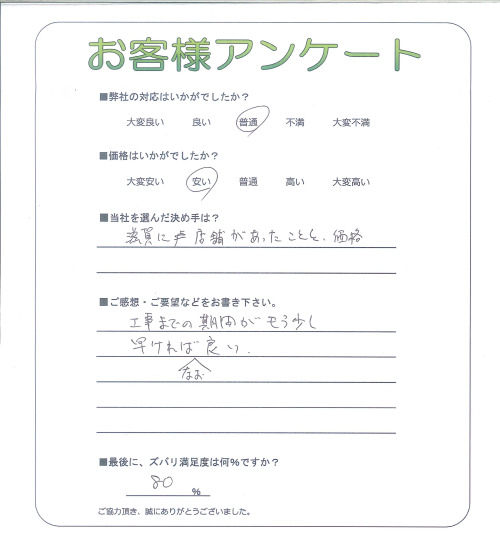 お客様アンケート
■弊社の対応はいかがでしたか？
大変良い 良い 普通 不満 大変不満
■価格はいかがでしたか？
大変安い 安い 普通 高い 大変高い
■当社を選んだ決め手は？
滋賀に 店舗があったことと、価格
■ご感想・ご要望などをお書き下さい。
工事までの期間がもう少し
早ければ良い.
なお
■最後に、ズバリ満足度は何％ですか？
80 %
ご協力頂き、誠にありがとうございました。